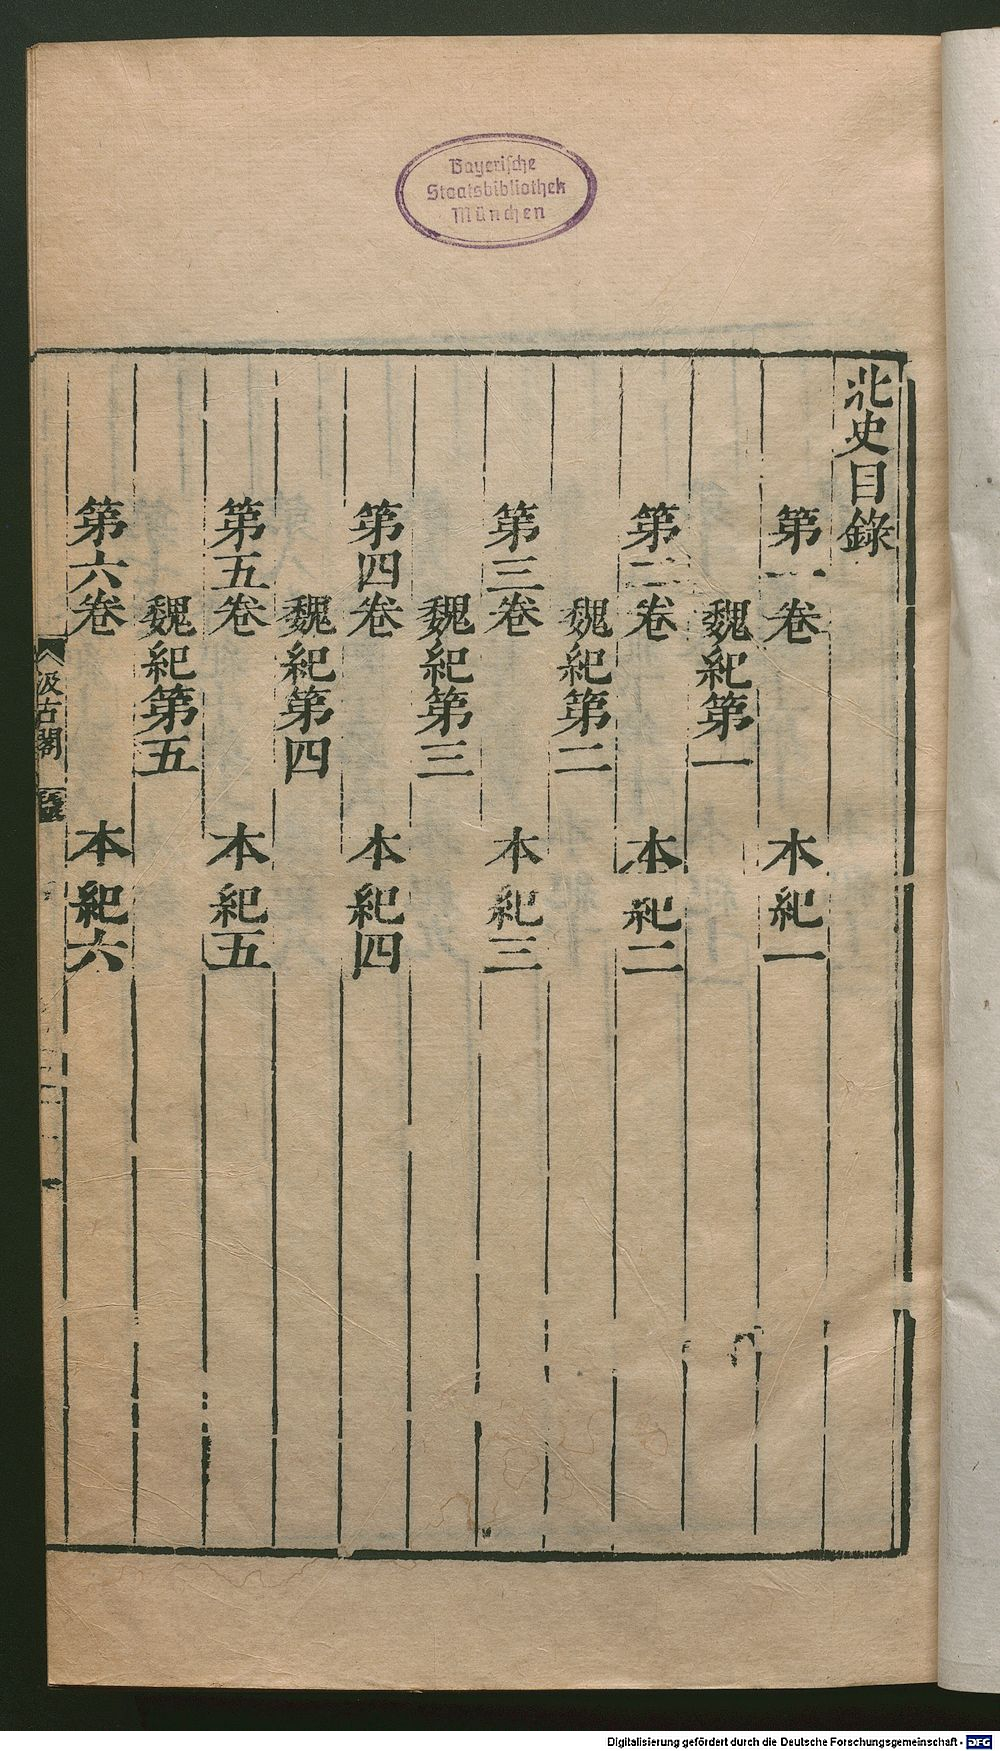 Bayerische
Staatsbibliothek
München
北史目錄
第一卷 本紀一
魏紀第一
第二卷 本紀二
魏紀第二
第三卷 本紀三
魏紀第三
第四卷 本紀四
魏紀第四
第五卷 本紀五
魏紀第五
第六卷 本紀六
汲古閣
Digitalisierung gefördert durch die Deutsche Forschungsgemeinschaft - DFG